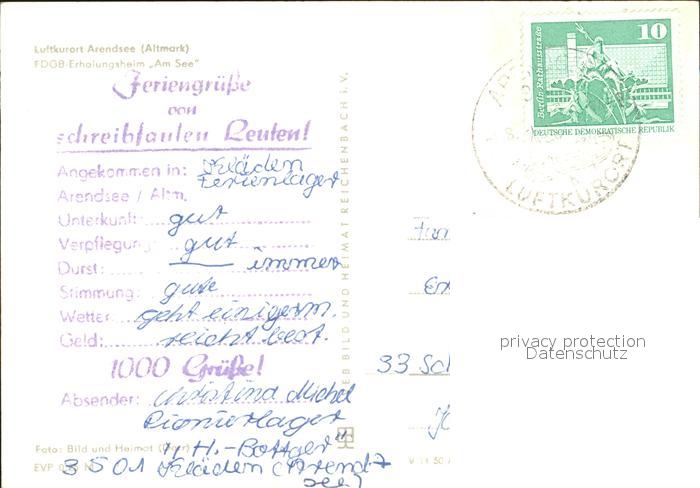 Luftkurort Arendsee (Altmark)
FDGB-Erholungsheim „Am See"
Feriengrüße
von
schreibfaulen Leuten!
Angekommen in: Kläden
Ferienlager
Arendsee / Altm.
Unterkunft: gut
Verpflegung: gut
Durst: immer
Stimmung: gute
Wetter: geht einigerm.
Geld: reicht best.
1000 Grüße!
Absender: Christina Michel
Pionierlager
"H.-
3501 Kläden (Arend
see)
Foto: Bild und Heimat
EVP
BILD UND HEIMAT REICHENBACH i. V.
10
Berlin-Rathausstraße
DEUTSCHE DEMOKRATISCHE REPUBLIK
LUFTKURORT
33 Sch
privacy protection
Datenschutz